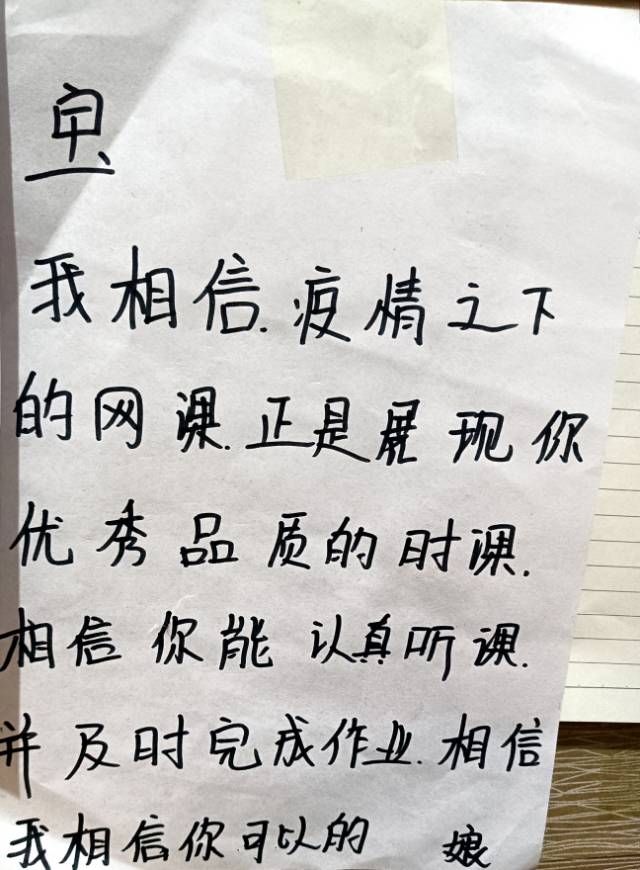 我相信.疫情之下
的网课.正是展现你
优秀品质的时课.
相信你能认真听课.
并及时完成作业.相信
我相信你可以的 娘